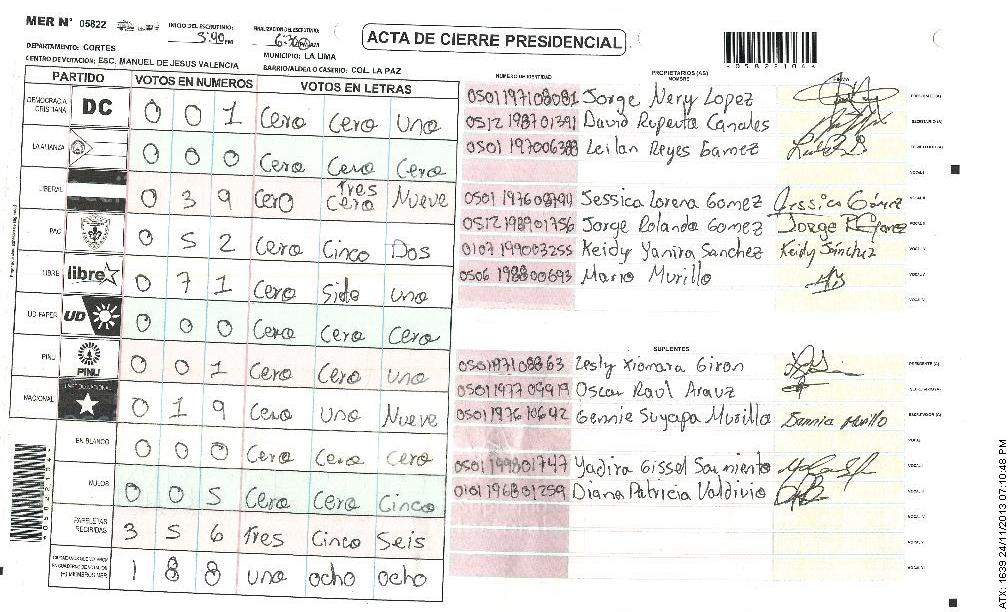 MER N° 05822
INICIO DEL ESCRUTINIO: 3:90 PM
FINALIZACION DEL ESCRUTINIO: 6:30 PM AM
ACTA DE CIERRE PRESIDENCIAL
0582210
DEPARTAMENTO: CORTES
MUNICIPIO: LA LIMA
CENTRO DE VOTACION: ESC. MANUEL DE JESUS VALENCIA
BARRIO/ALDEA O CASERIO: COL. LA PAZ
PARTIDO VOTOS EN NUMEROS VOTOS EN LETRAS
DEMOCRACIA CRISTIANA DC 0 0 1 Cero Cero Uno
LA ALIANZA 0 0 0 Cero Cero Cero
LIBERAL 0 3 9 Cero Tres Cero Nueve
PAC 0 5 2 Cero Cinco Dos
LIBRE libre 0 7 1 Cero Siete uno
UD FAPER UD 0 0 0 Cero Cero Cero
PINU PINU 0 0 1 Cero Cero uno
NACIONAL 0 1 9 Cero Uno Nueve
EN BLANCO 0 0 0 Cero Cero Cero
NULOS 0 0 5 Cero Cero Cinco
PAPELETAS RECIBIDAS 3 5 6 Tres Cinco Seis
1 8 8 uno ocho ocho
NUMERO DE IDENTIDAD PROPIETARIOS (AS) NOMBRE FIRMA
0501197108081 Jorge Nery Lopez PRESIDENTE (A)
0512198701391 David Ruperto Canales SECRETARIO (A)
0501197006388 Leilan Reyes Gamez
Jessica Lorena Gomez Jessica Gómez
0512198901756 Jorge Rolando Gomez
0107199003255 Keidy Yanira Sanchez Keidy Sánchez
0506198800693 Mario Murillo
SUPLENTES
0501197108363 Lesly Xiomara Giron PRESIDENTE (A)
0501197709919 Oscar Raul Arauz SECRETARIO (A)
0501197610642 Gennie Suyapa Murillo ESCRUTADOR (A)
0501199801747 Yadira Gissel Sarmiento
0101196801259 Diana Patricia Valdivio
ATX: 1639 24/11/2013 07:10:48 PM